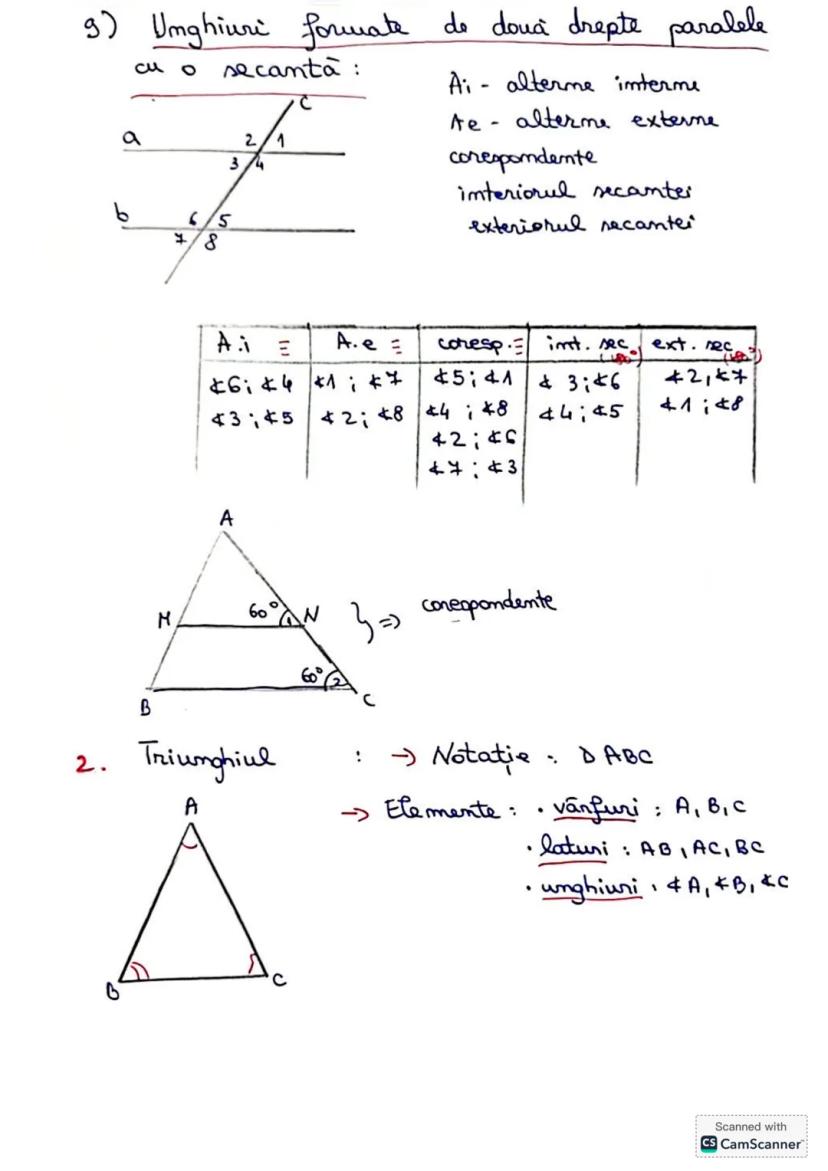 9) Unghiuri formate de două drepte paralele
cu o secantă:
Ai - alterne interne
Ae - alterne externe
corespondente
interiorul secantei
exteriorul secantei
c
a
2 1
3 4
b
6 5
7 8
A.i ≡ A.e ≡ coresp.≡ int. sec (180°) ext. sec (180°)
∢6; ∢4 ∢1; ∢7 ∢5; ∢1 ∢3; ∢6 ∢2, ∢7
∢3; ∢5 ∢2; ∢8 ∢4; ∢8 ∢4; ∢5 ∢1; ∢8
∢2; ∢6
∢7; ∢3
A
M 60° 1 N } => corespondente
60° 2
B C
2. Triunghiul : → Notație: Δ ABC
A
→ Elemente: • vârfuri: A, B, C
• laturi: AB, AC, BC
• unghiuri: ∢A, ∢B, ∢C
B C
Scanned with
CS CamScanner